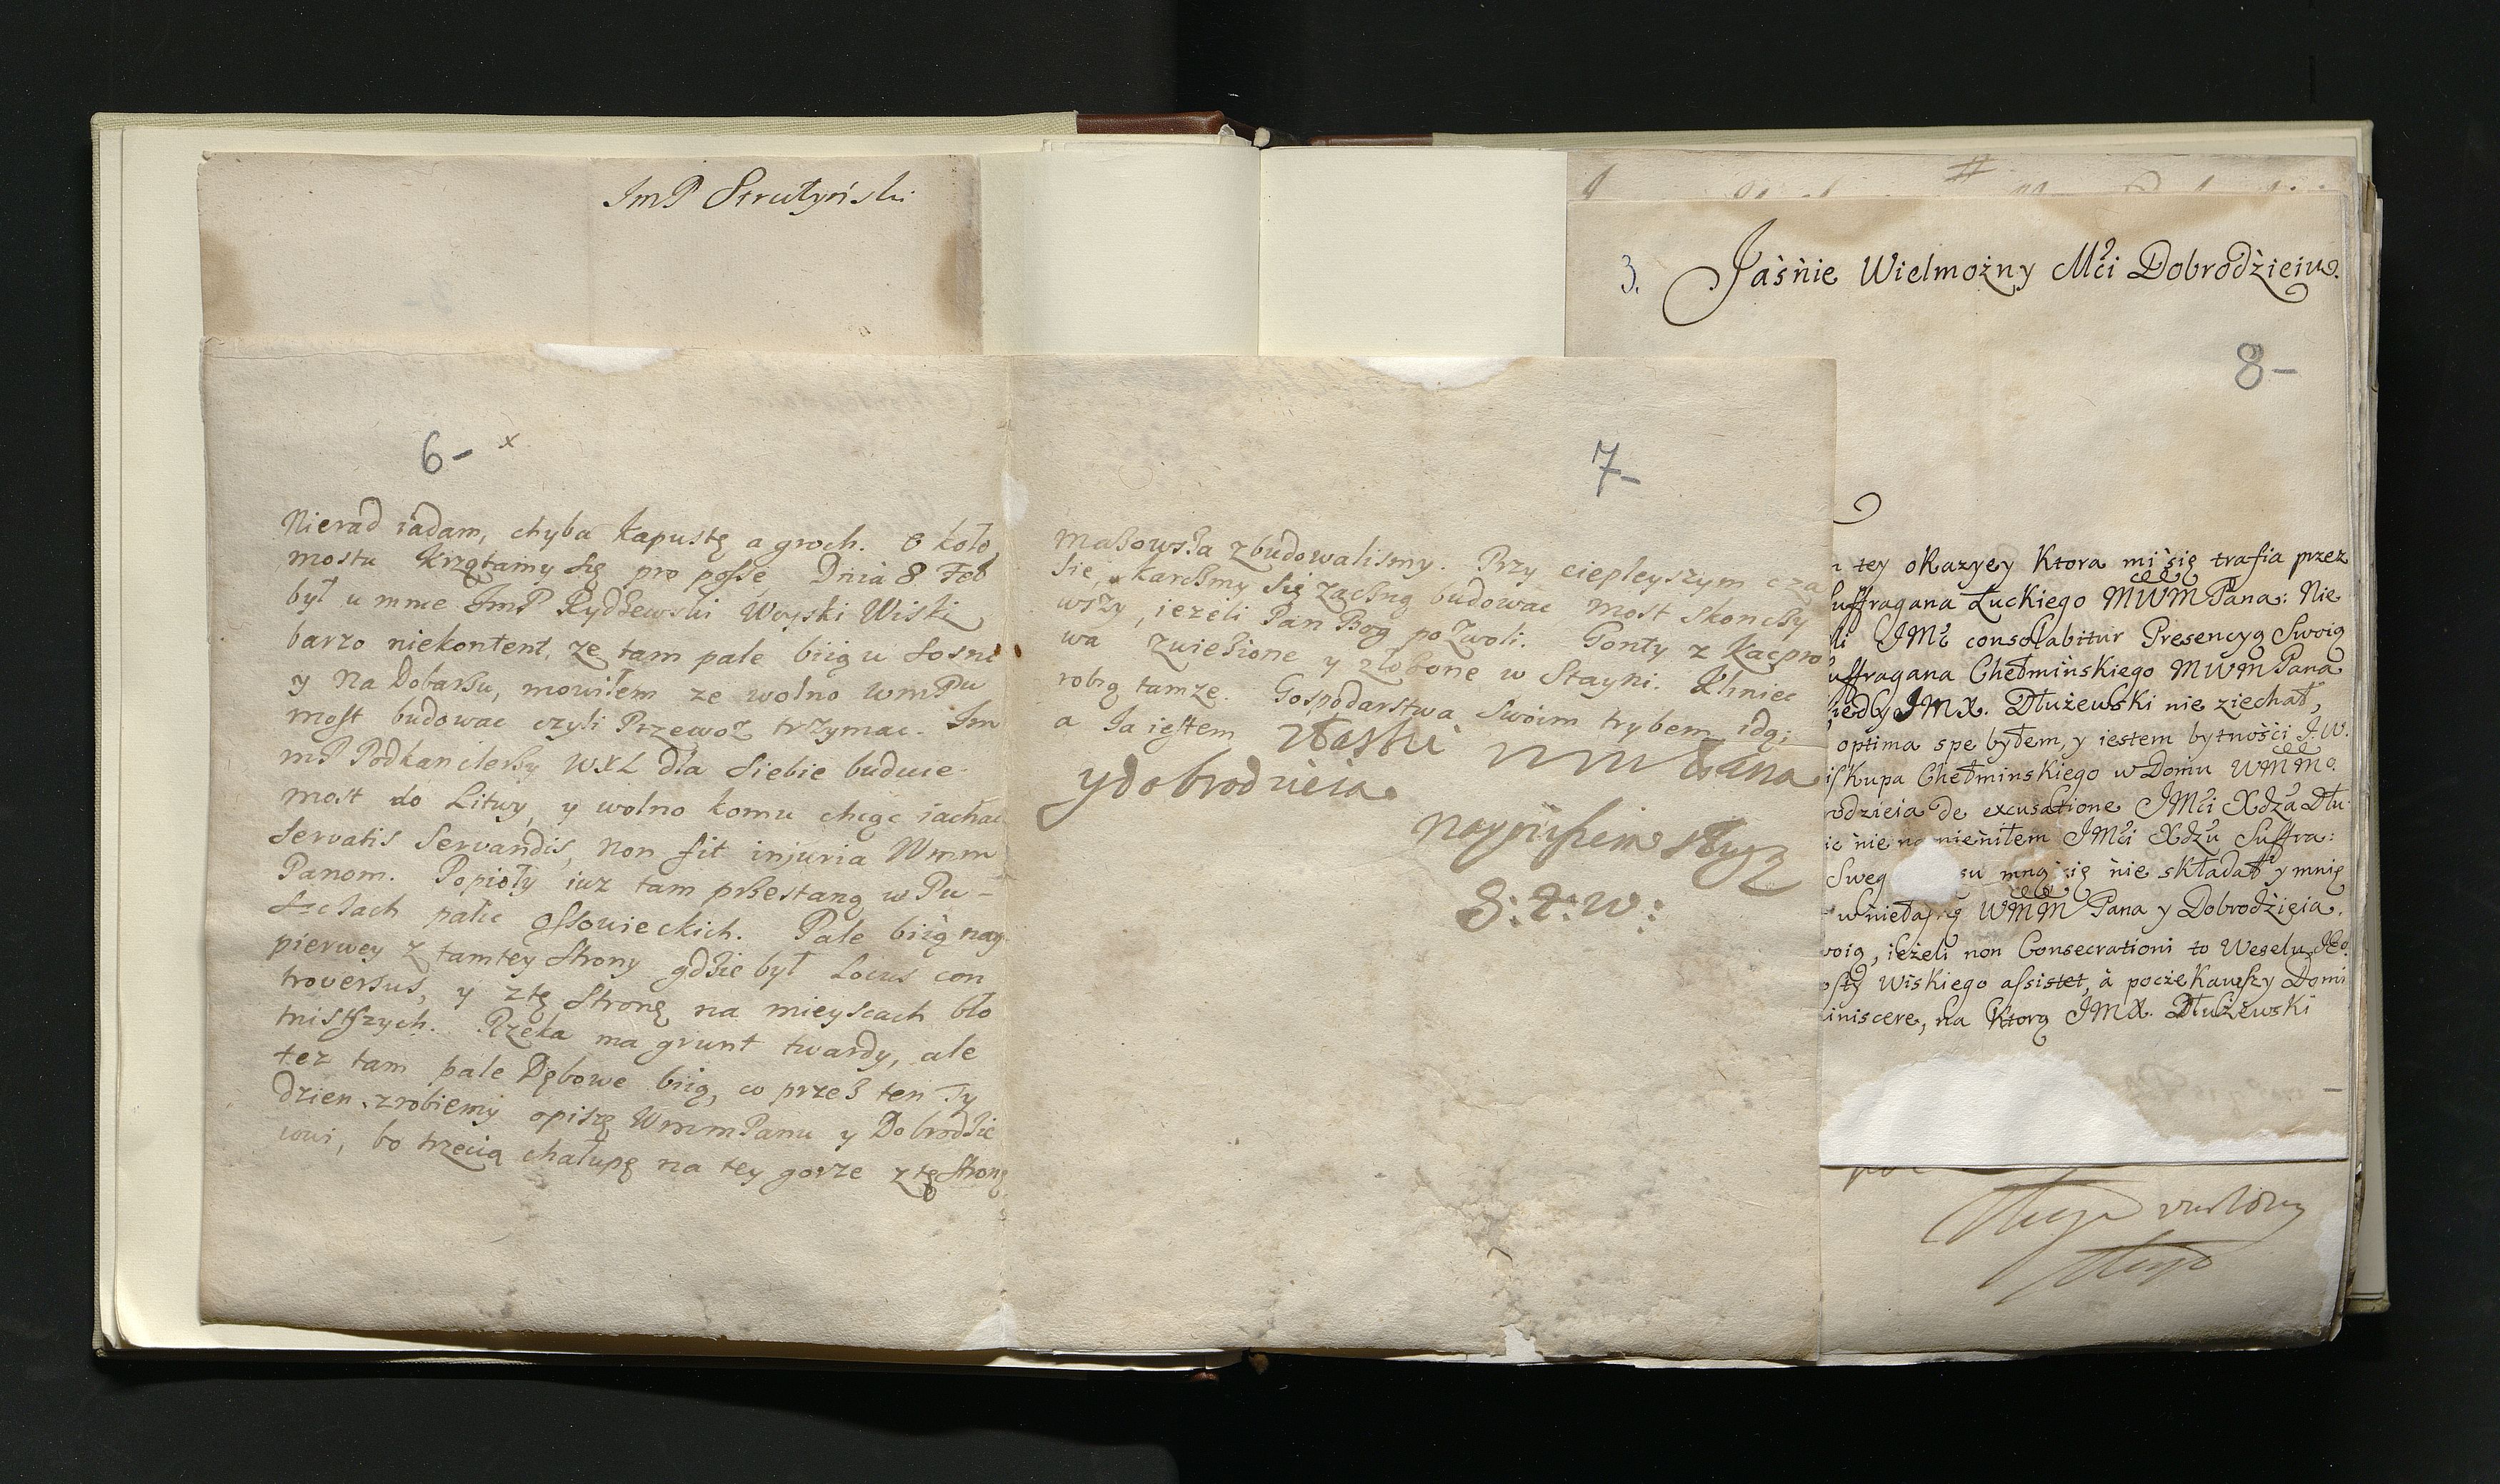 ImP Strutyński
6- x
Nierad iadam, chyba kapustę a groch. O koło
mostu krzątamy się pro posse Dnia 8 Feb
był u mnie ImP Rydzewski Woyski Wiski
barzo niekontent, ze tam pale biią u Sosni
y Na Dobarzu, mowiłem ze wolno WmPu
most budowac czyli Przewoz trzymac. Im
mP Podkanclerzy WXL dla siebie buduie
most do Litwy, y wolno komu chcąc iachac
servatis servandis, non fit injuria Wmm
Panom. Popioły iuz tam przestaną w Pu-
szczach palic Ossowieckich. Pale biią nay
pierwey z tamtey strony gdzie był Locus con
troversus, y z tę stronę na mieyscach bło
tnistszych. Rzeka ma grunt twardy, ale
tez tam pale Dębowe biią, co przez ten Ty
dzien zrobiemy opiszę WmmPanu y Dobrodzie
iowi, bo trzecią chałupę na tey gorze z tę stronę
7-
Makowska zbudowalismy. Przy ciepleyszym cza
sie, karczmy się zaczną budowac most skonczy
wszy, iezeli Pan Bog pozwoli. Gonty z Kacpro
wa zwiezione y złozone w Stayni. Khniec
robią tamze. Gospodarstwa swoim trybem idą;
a Ia iestem Właski Pana
y dobrodzieia
nayniższem sługą
S: W:
3. Jaśnie Wielmożny Mći Dobrodźieiu.
8-
tey okazyey Ktora mi się trafia przez
Suffragana Łuckiego MWM Pana: Nie
li JMć consolabitur Presencyą Swoią
uffragana Chełmińskiego MWM Pana
iedy JMX. Dłużewski nie ziechał,
optima spe byłem, y iestem bytnośći J.W.
iskupa Chełminskiego w Domu WMMo.
odzieia de excusatione JMći Xdza Dłu-
ić nie nienitem JMći Xdzu Suffra:
Sweg su mną się nie składał y mnię
w niełaskę WMM Pana y Dobrodźieia.
woią, ieżeli non Consecrationi to Weselu Jeo.
osty Wiskiego assistet, à poczekawszy Domi
iniscere, na Ktorą JMX. Dłużewski
sługa
sługa